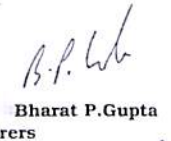 B.P. 
Bharat P.Gupta
rers